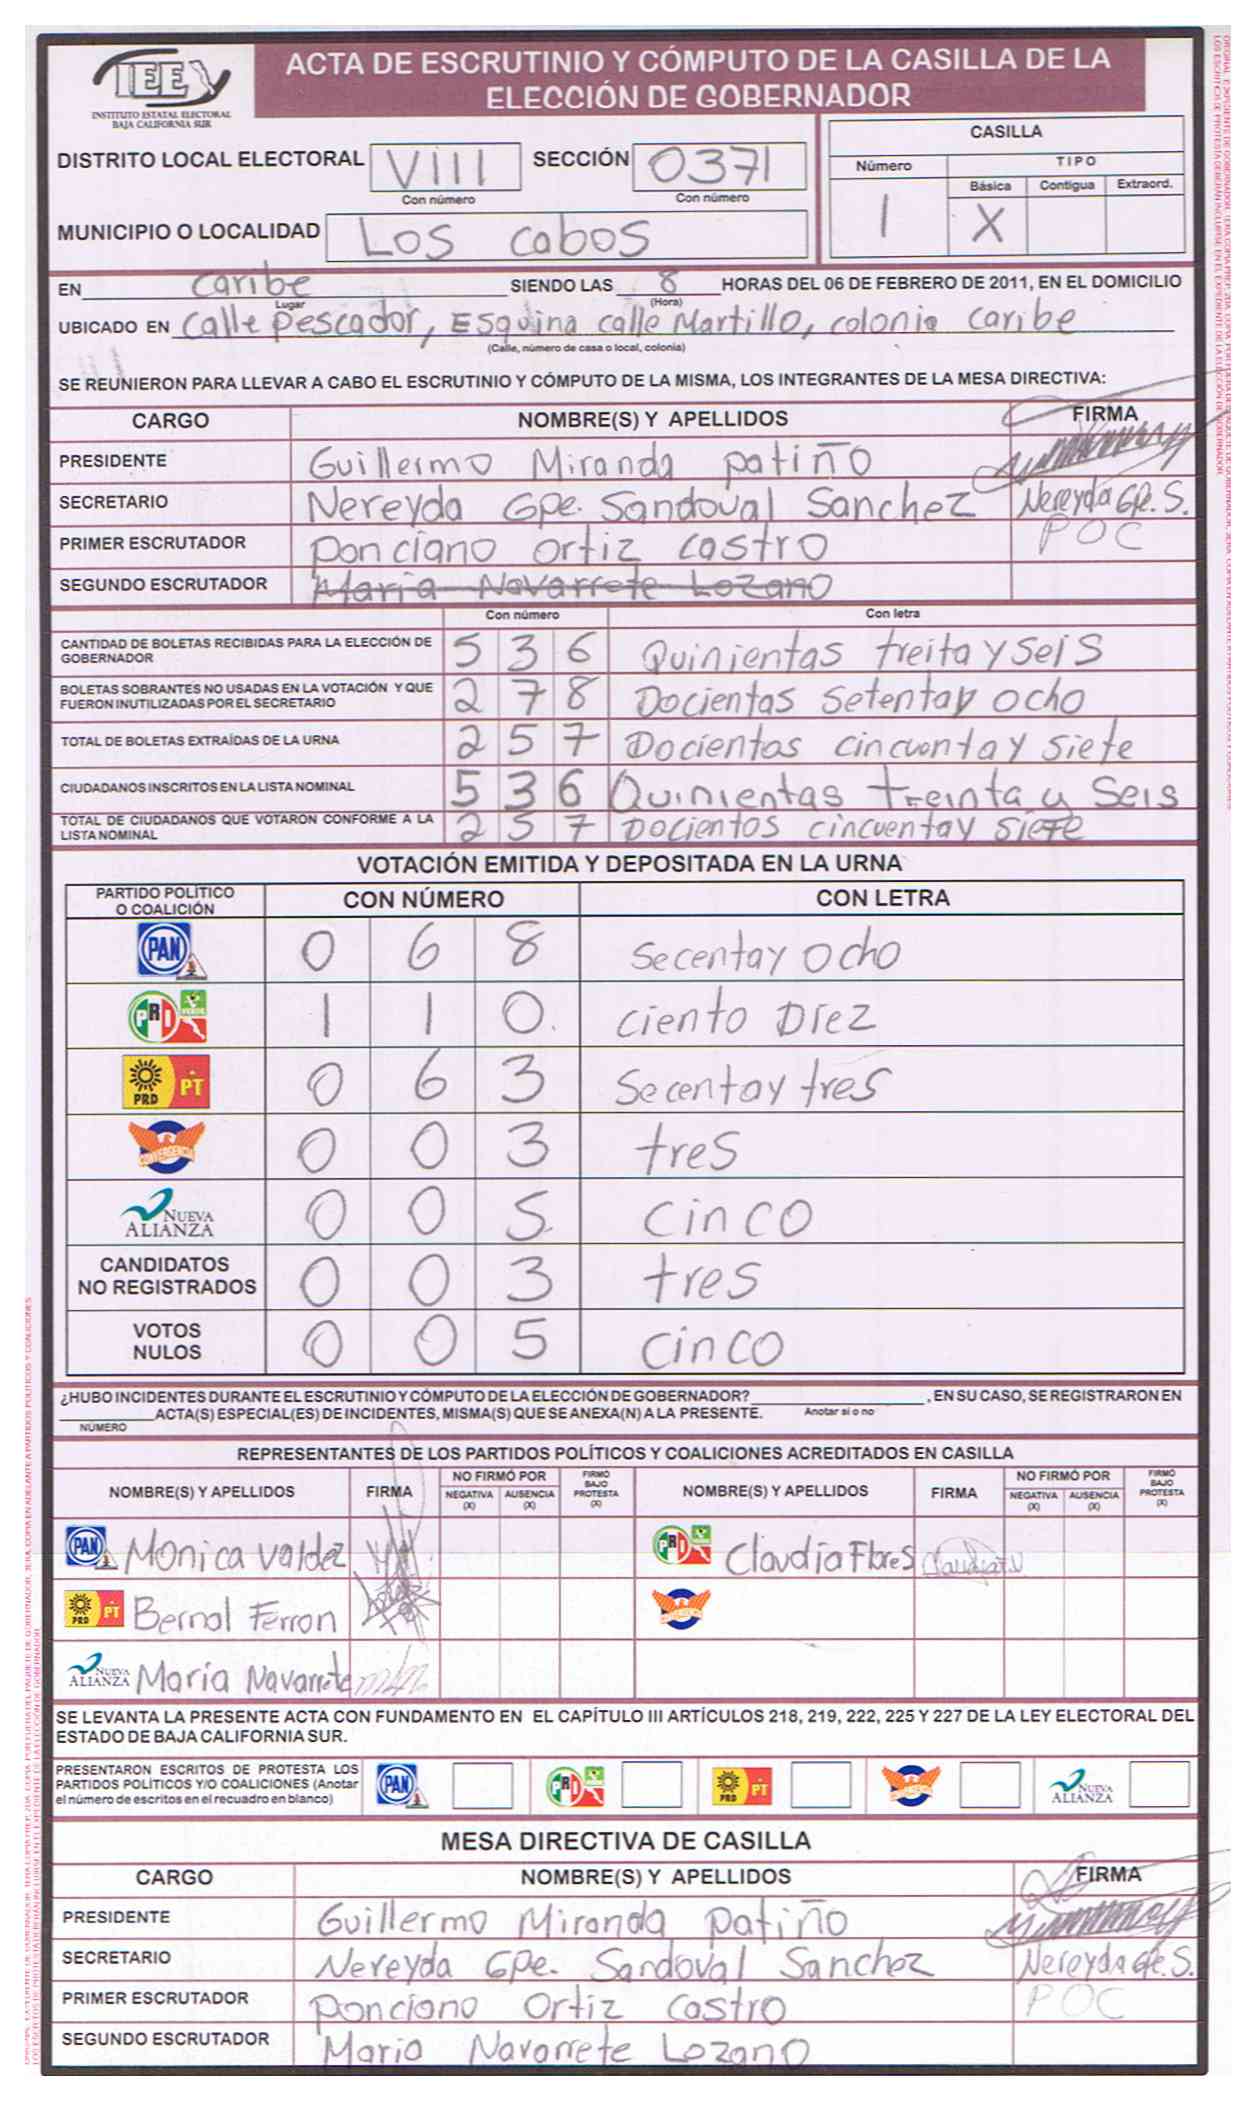 IEE
INSTITUTO ESTATAL ELECTORAL
BAJA CALIFORNIA SUR
ACTA DE ESCRUTINIO Y CÓMPUTO DE LA CASILLA DE LA
ELECCIÓN DE GOBERNADOR
DISTRITO LOCAL ELECTORAL VIII SECCIÓN 0371
Con número Con número
MUNICIPIO O LOCALIDAD Los cabos
CASILLA
Número TIPO
Básica Contigua Extraord.
1 X
EN caribe SIENDO LAS 8 HORAS DEL 06 DE FEBRERO DE 2011, EN EL DOMICILIO
Lugar (Hora)
UBICADO EN Calle Pescador, Esquina calle Martillo, colonia caribe
(Calle, número de casa o local, colonia)
SE REUNIERON PARA LLEVAR A CABO EL ESCRUTINIO Y CÓMPUTO DE LA MISMA, LOS INTEGRANTES DE LA MESA DIRECTIVA:
CARGO NOMBRE(S) Y APELLIDOS FIRMA
PRESIDENTE Guillermo Miranda Patiño
SECRETARIO Nereyda Gpe. Sandoval Sanchez Nereyda Gpe. S.
PRIMER ESCRUTADOR Ponciano Ortiz Castro POC
SEGUNDO ESCRUTADOR Maria Navarrete Lozano
Con número Con letra
CANTIDAD DE BOLETAS RECIBIDAS PARA LA ELECCIÓN DE
GOBERNADOR 5 3 6 Quinientas treita y seis
BOLETAS SOBRANTES NO USADAS EN LA VOTACIÓN Y QUE
FUERON INUTILIZADAS POR EL SECRETARIO 2 7 8 Docientas setentay ocho
TOTAL DE BOLETAS EXTRAÍDAS DE LA URNA 2 5 7 Docientas cincuenta y siete
CIUDADANOS INSCRITOS EN LA LISTA NOMINAL 5 3 6 Quinientas treinta y Seis
TOTAL DE CIUDADANOS QUE VOTARON CONFORME A LA
LISTA NOMINAL 2 5 7 Docientos cincuentay siete
VOTACIÓN EMITIDA Y DEPOSITADA EN LA URNA
PARTIDO POLÍTICO
O COALICIÓN CON NÚMERO CON LETRA
PAN 0 6 8 Secentay ocho
PRI VERDE 1 1 0. ciento Diez
PRD PT 0 6 3 Secentay tres
CONVERGENCIA 0 0 3 tres
NUEVA ALIANZA 0 0 5 cinco
CANDIDATOS
NO REGISTRADOS 0 0 3 tres
VOTOS
NULOS 0 0 5 cinco
¿HUBO INCIDENTES DURANTE EL ESCRUTINIO Y CÓMPUTO DE LA ELECCIÓN DE GOBERNADOR? , EN SU CASO, SE REGISTRARON EN
ACTA(S) ESPECIAL(ES) DE INCIDENTES, MISMA(S) QUE SE ANEXA(N) A LA PRESENTE. Anotar si o no
NÚMERO
REPRESENTANTES DE LOS PARTIDOS POLÍTICOS Y COALICIONES ACREDITADOS EN CASILLA
NOMBRE(S) Y APELLIDOS FIRMA NO FIRMÓ POR NEGATIVA (X) AUSENCIA (X) FIRMÓ BAJO PROTESTA (X) NOMBRE(S) Y APELLIDOS FIRMA NO FIRMÓ POR NEGATIVA (X) AUSENCIA (X) FIRMÓ BAJO PROTESTA (X)
PAN Monica Valdez PRI VERDE Claudia Flores
PRD PT Bernal Ferron CONVERGENCIA
NUEVA ALIANZA Maria Navarrete
SE LEVANTA LA PRESENTE ACTA CON FUNDAMENTO EN EL CAPÍTULO III ARTÍCULOS 218, 219, 222, 225 Y 227 DE LA LEY ELECTORAL DEL
ESTADO DE BAJA CALIFORNIA SUR.
PRESENTARON ESCRITOS DE PROTESTA LOS
PARTIDOS POLÍTICOS Y/O COALICIONES (Anotar
el número de escritos en el recuadro en blanco) PAN PRI PRD PT CONVERGENCIA NUEVA ALIANZA
MESA DIRECTIVA DE CASILLA
CARGO NOMBRE(S) Y APELLIDOS FIRMA
PRESIDENTE Guillermo Miranda Patiño
SECRETARIO Nereyda Gpe. Sandoval Sanchez Nereyda Gpe. S.
PRIMER ESCRUTADOR Ponciano Ortiz Castro POC
SEGUNDO ESCRUTADOR Maria Navarrete Lozano